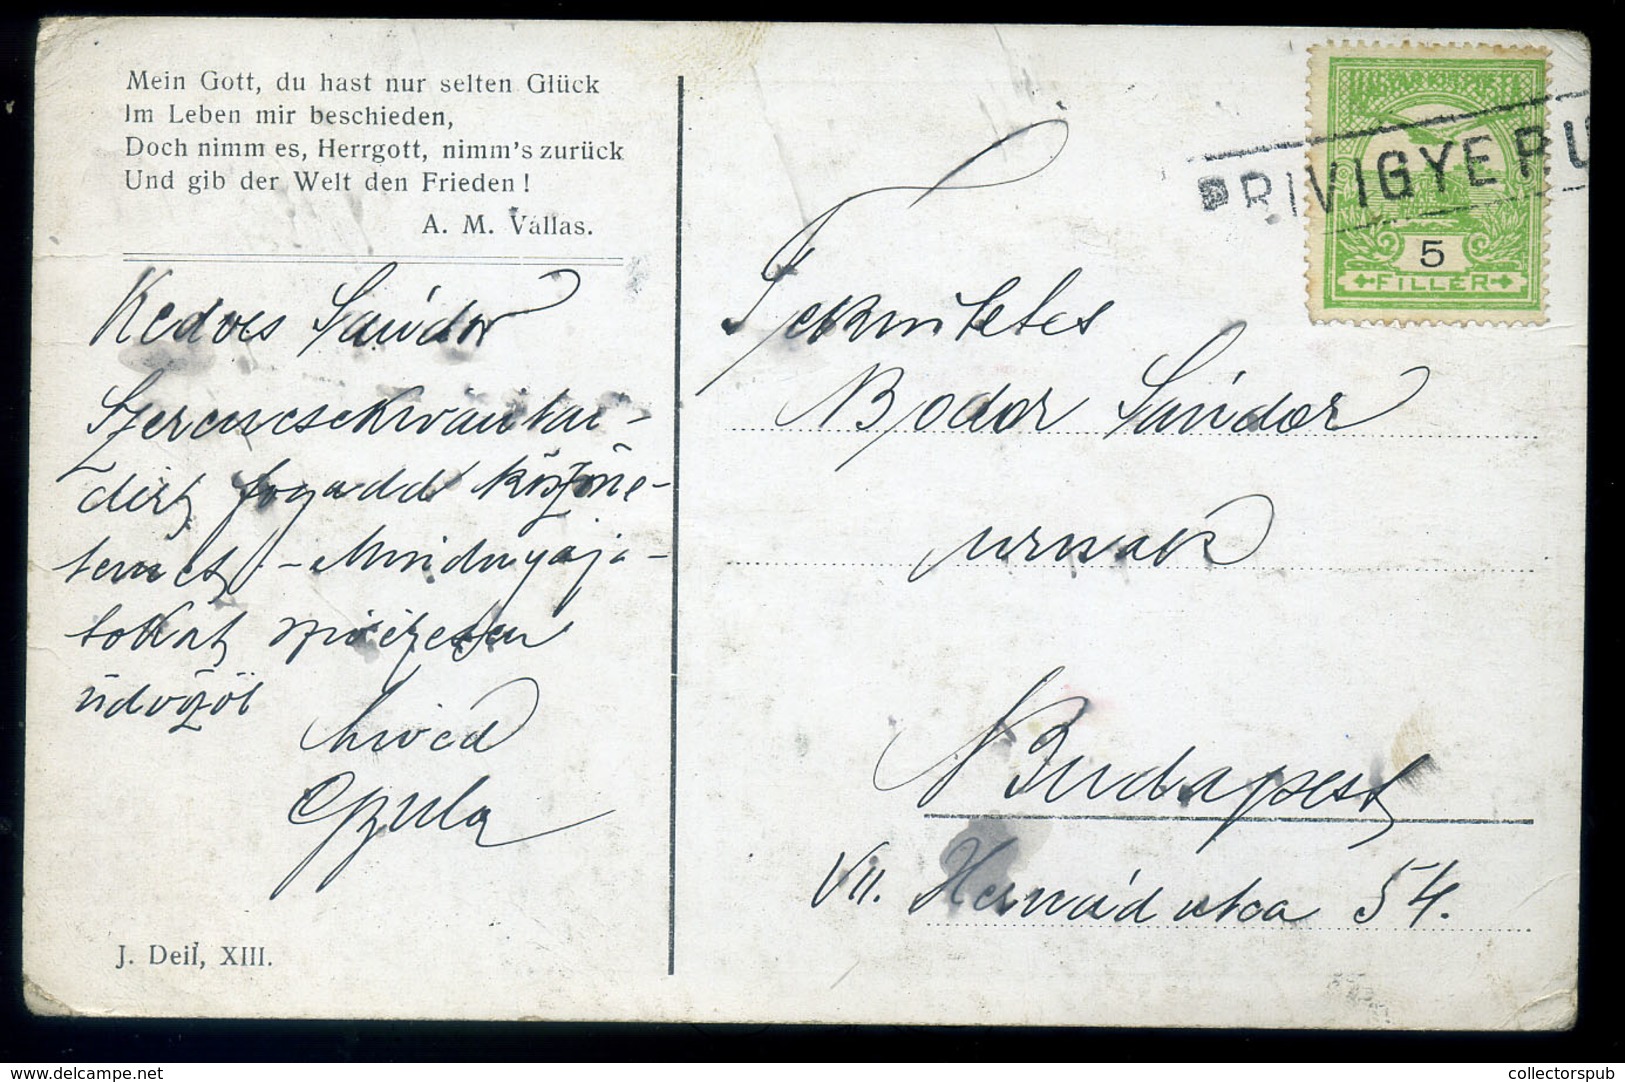 Mein Gott, du hast nur selten Glück
Im Leben mir beschieden,
Doch nimm es, Herrgott, nimm's zurück
Und gib der Welt den Frieden!
A. M. Vállas.
Kedves Sándor
Szerencsekivánatai-
dért fogadd köszöne-
temet - Mindnyája-
tokat szivesen
üdvözöl
hived
Gyula
J. Deil, XIII.
5
FILLER
PRIVIGYERU
Tekintetes
Bodor Sándor
urnak
Budapest
VII. Hernád utca 54.
delcampe.net
collectorspub